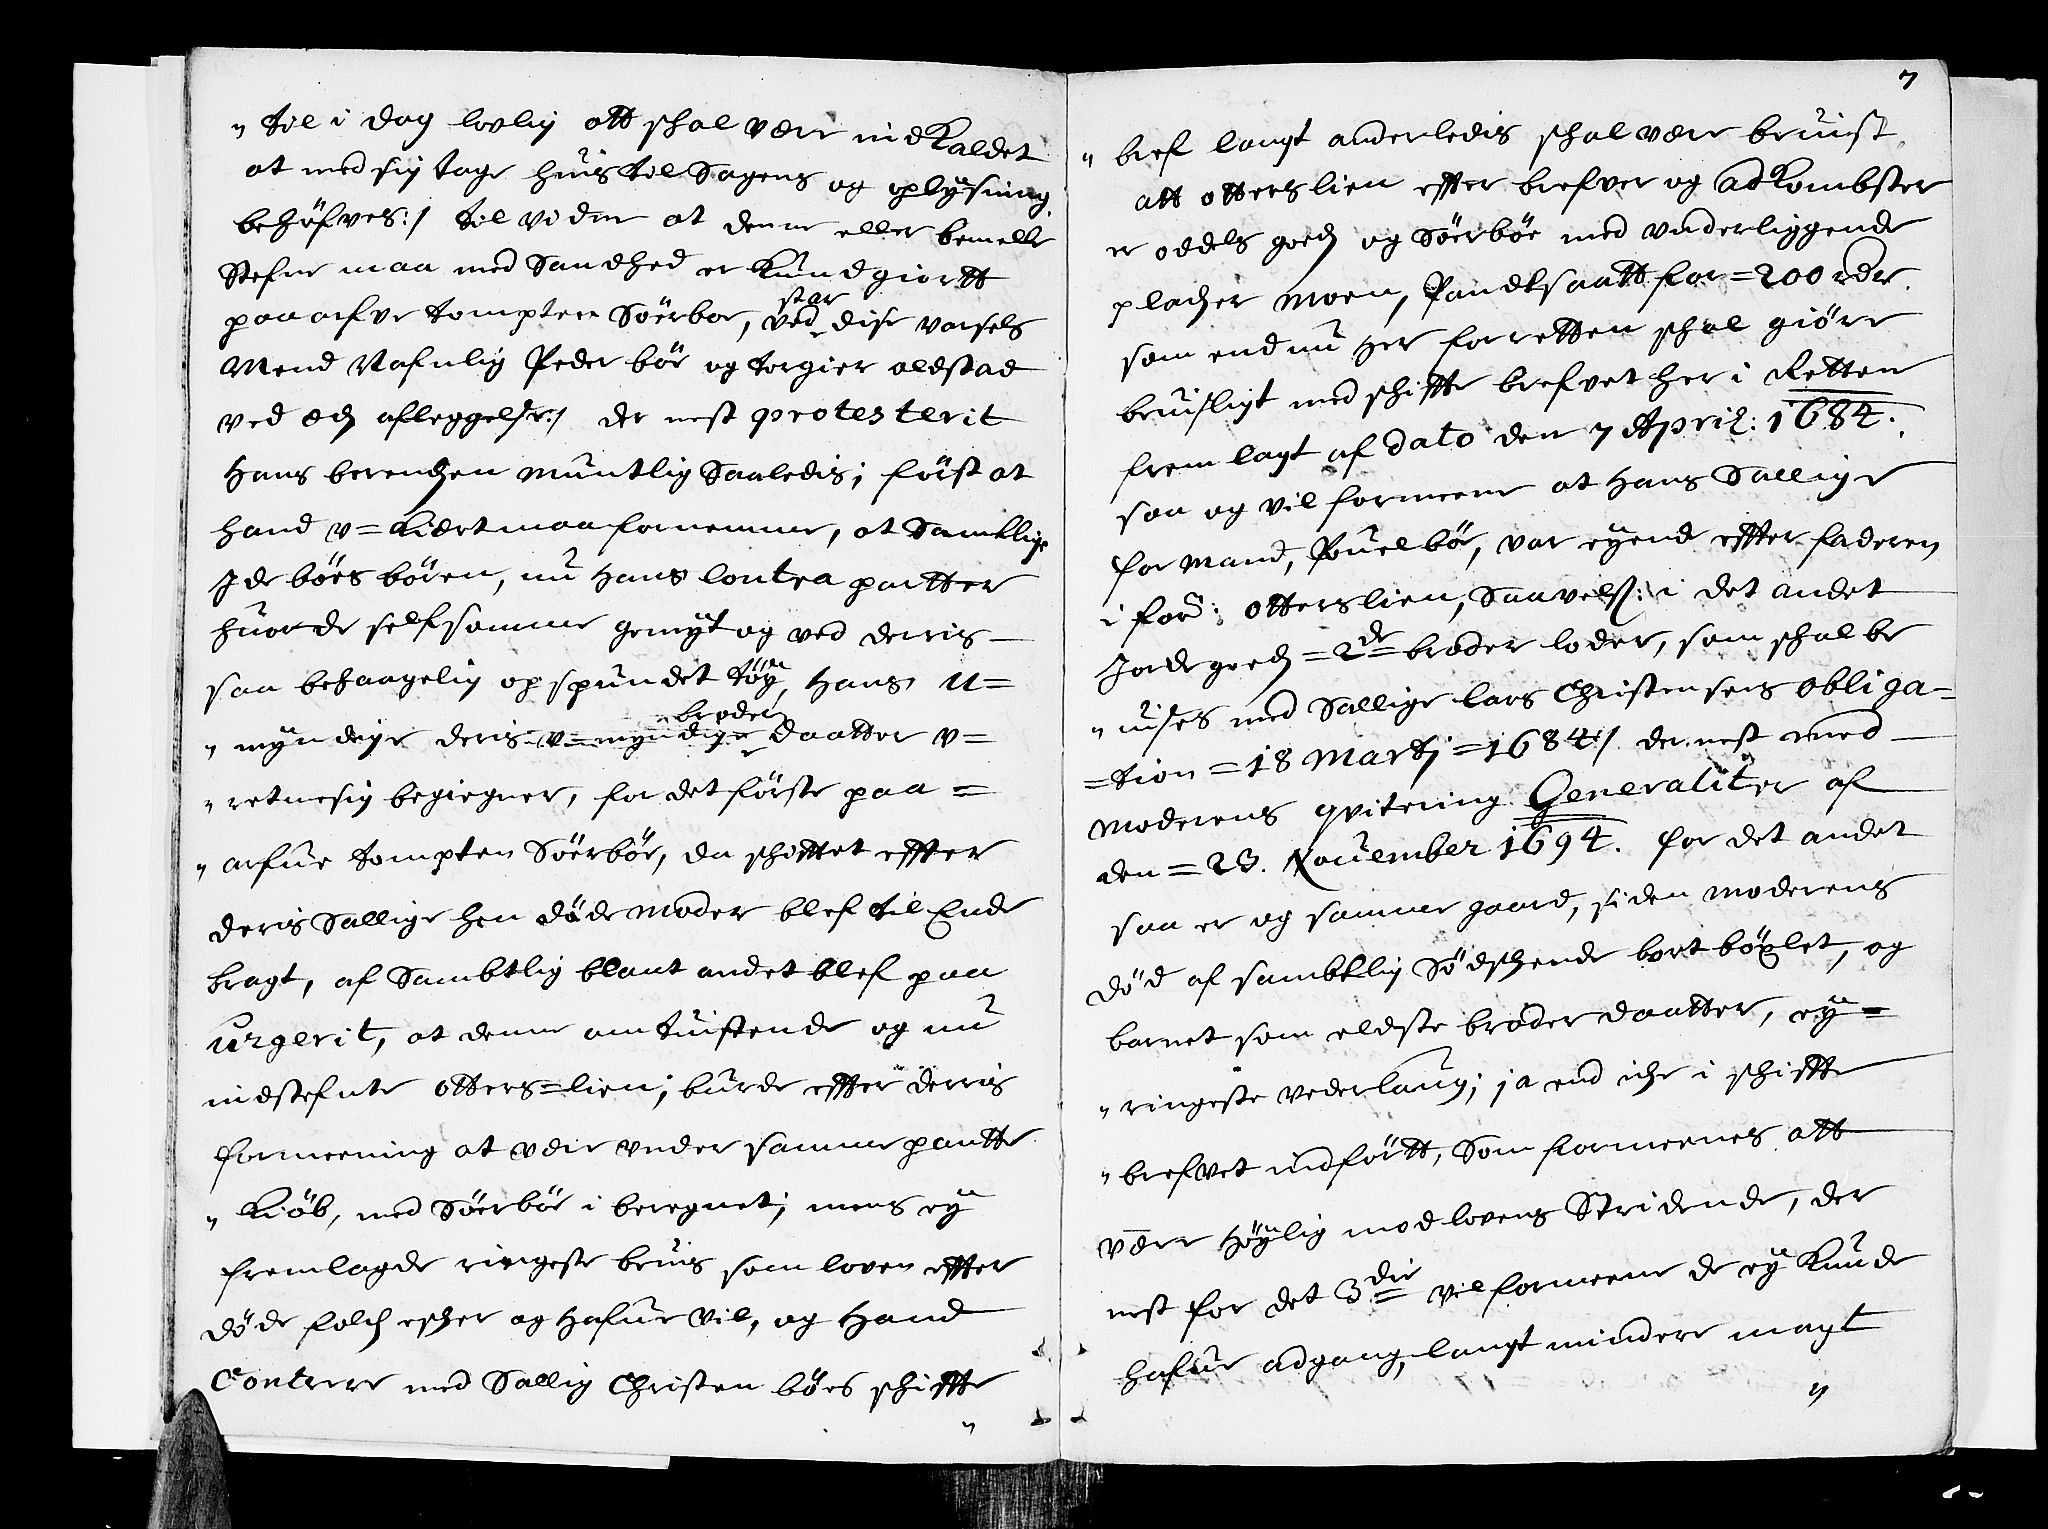 " til i dag lovlig att schal være indKaldet
at med sig tage huis til Sagens og oplysning
behøfves:/ til viden at denne eller bemelte
Stefne maa med Sandhed er Kundgiortt
paa arfve tompten Söerbøe, ved star dise varsels
Mend Nafnlig Peder bøe og torgier oldstad
ved æd afleggelse:/ der nest protesterit
Hans berendsen muntlig Saaledis; först at
hand v= Kiært maa fornemme, at Samtlige
Ide böes börn, nu hans Contra partter
huor de self samme gemyt og ved derris
saa behaagelig opspundet töy, Hans u=
" myndige deris v=myndige broder daatter v=
" retmesig begiegner, for det förste paa =
" arfue tompten Söerböe, da schifftet effter
deris Sallige hen döde moder blef til Ende
bragt, af Sambtlig blant andet blef paa
urgerit, at denne omtuistende og nu
indstefnte otters=lien; burde effter derris
formeening at være under samme pantte
" Kiöb, med Söerböe i beregnet; mens ey
fremlagde ringeste beuis som loven effter
döde folch escher og hafue vil, og Hand
Contrere med Sallig Christen böes schiffte
"
7
" bref langt anderledis schal være beuist
att otterslien effter brefver og adKombster
er oddels goeds og Söerböe med underliggende
pladser Moen, Pandtsaatt for = 200 rdr.
som end nu her for retten schal giöre
beuisligt med schiffte brefvet her i Retten
fremlagt af dato den 7 April: 1684.
saa og vil formeene at hans Sallige
formand, Pouel böe, var eyende effter faderen
i for: otterslien, Saavels: i det andet
Jorde goeds = 2de = broder loder, som schal be
" uises med Sallige lars Christensens obliga=
=tion = 18 Martj = 1684:/ der nest med
moderens qvitering Generaliter af
den = 23. Nouember 1694. for det andet
saa er og samme gaard, siden moderens
död af sambtlig Södschende bort böxlet, og
barnet som eldste broder daatter, ey=
" ringeste vederlaug; ja end iche i schiffte
" brefvet indförtt, Som formeenes att
være höylig mod lovens Stridende, der
nest for det 3die vil formeene de ey Kunde
hafue adgang, langt mindere magt
"